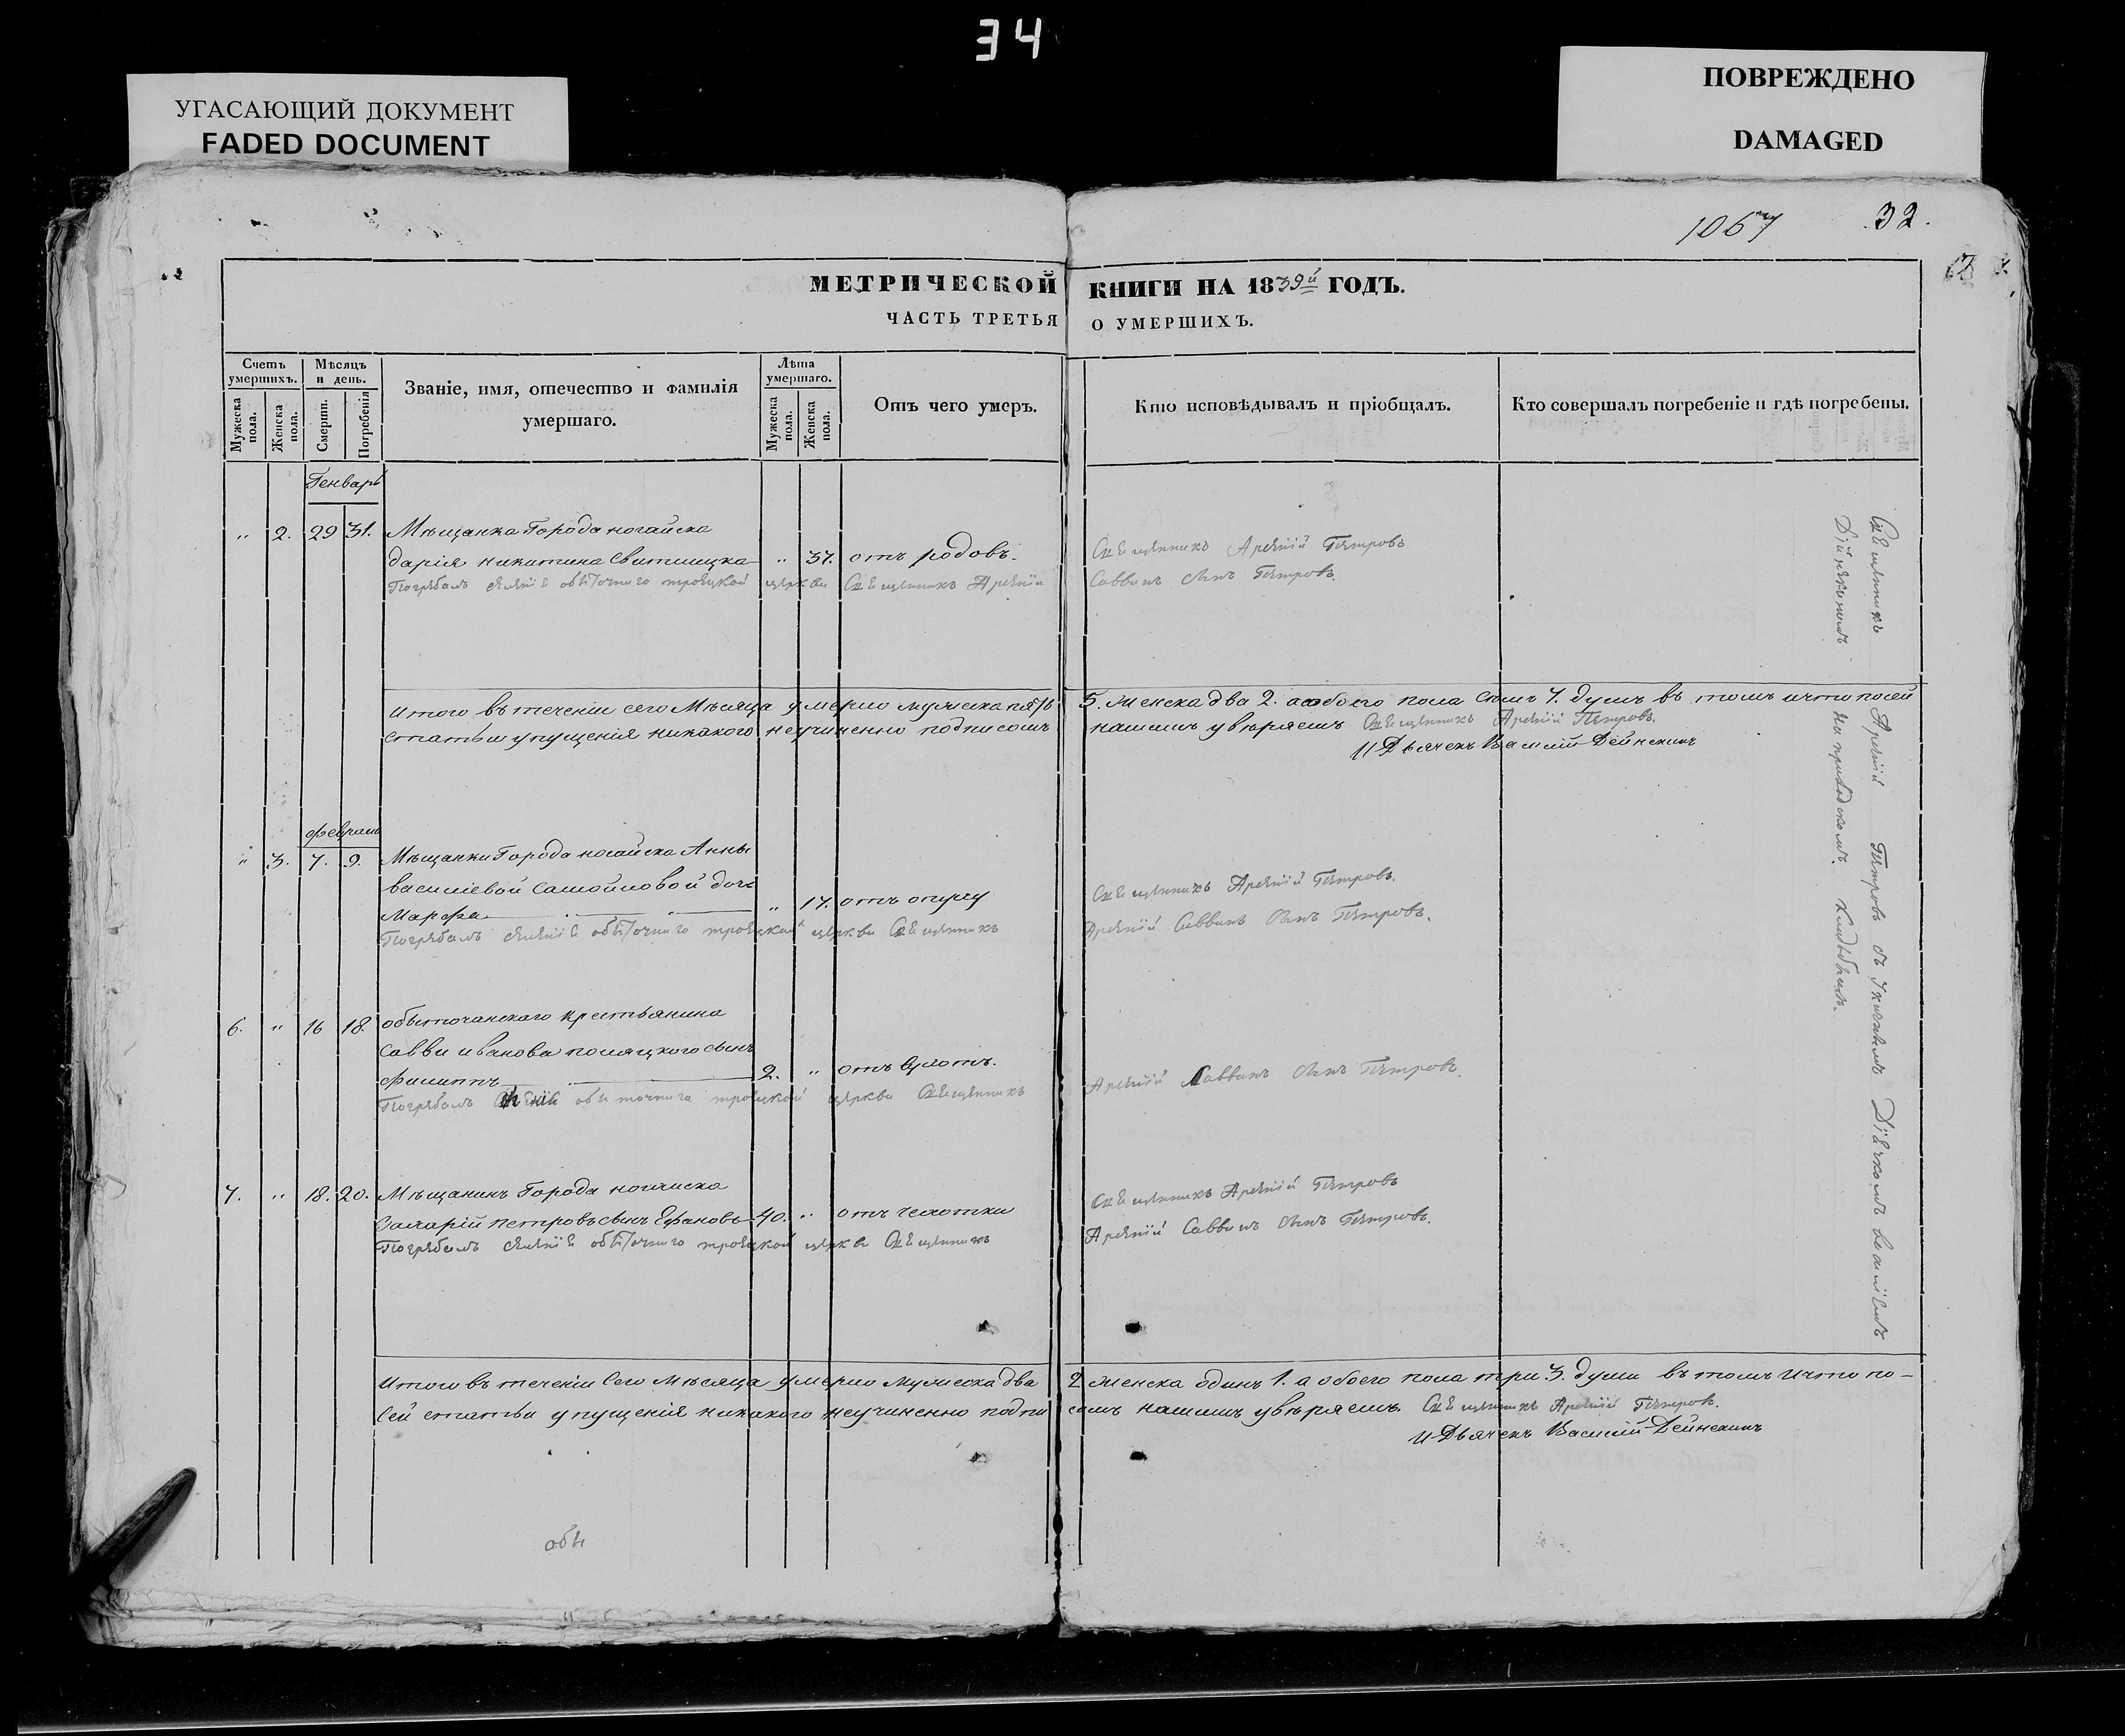 34
УГАСАЮЩИЙ ДОКУМЕНТ
FADED DOCUMENT
ПОВРЕЖДЕНО
DAMAGED
1067
32.
МЕТРИЧЕСКОЙ КНИГИ НА 1839й ГОДЪ.
ЧАСТЬ ТРЕТЬЯ О УМЕРШИХЪ.
Счетъ умершихъ.
Мѣсяцъ и день.
Званіе, имя, отечество и фамилія умершаго.
Лѣта умершаго.
Отъ чего умеръ.
Кто исповѣдывалъ и пріобщалъ.
Кто совершалъ погребеніе и гдѣ погребены.
Мужеска пола.
Женска пола.
Смерти.
Погребенія
Мужеска пола.
Женска пола.
Генварь
" 2. 29 31. Мѣщанка Города ногайска
дарія никитина " 37. отъ родовъ. Священникъ Арсеній Петровъ
Погребалъ селенія обыточнаго троецкой церкви Священникъ Арсеній Саввинъ сынъ Петровъ.
Итого въ теченіи сего Мѣсяца умерло мужеска пять 5. женска два 2. а обоего пола семь 7. душъ въ томъ и что по сей
статьи упущенія никакого неучиненно подписомъ нашимъ увѣряемъ Священникъ Арсеній Петровъ.
И Дьячекъ Василій Дейнекинъ
февраль
" 3. 7. 9. Мѣщанки Города ногайска Анны
василіевой Самойловой дочь
Марфа " 17. отъ Священникъ Арсеній Петровъ.
Погребалъ селенія обыточнаго троецкой церкви Священникъ Арсеній Саввинъ сынъ Петровъ.
6. " 16 18. обыточанскаго крестьянина
Савви иванова полицкого сынъ
Филиппъ 2. " отъ
Погребалъ обыточнаго троецкой церкви Священникъ Арсеній Саввинъ сынъ Петровъ.
7. " 18. 20. Мѣщанинъ Города ногайска
Захарій петровъ сынъ Ефановъ 40. " отъ чехотки Священникъ Арсеній Петровъ
Погребалъ селенія обыточнаго троецкой церкви Священникъ Арсеній Саввинъ сынъ Петровъ.
Итого въ теченіи Сего Мѣсяца умерло мужеска два 2 женска одинъ 1. а обоего пола три 3. души въ томъ и что по-
Сей статьи упущенія никакого неучиненно подписомъ нашимъ увѣряемъ. Священникъ Арсеній Петровъ.
И Дьячекъ Василій Дейнекинъ
обы
Священникъ Арсеній Петровъ съ Дьячкомъ василіемъ
Дейнекинымъ на приходскомъ кладбищѣ.